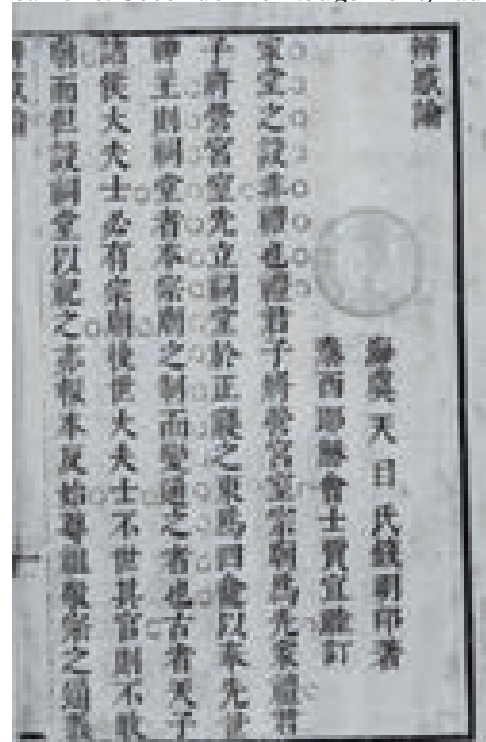 辨惑論
海虞天日氏錢明印著
泰西耶穌會士賈宜睦訂
家堂之設非禮也禮君子將營宮室宗廟為先家禮君
子將營宮室先立祠堂於正寢之東為四龕以奉先世
神主則祠堂者本宗廟之制而變通之者也古者天子
諸侯大夫士必有宗廟後世大夫士不世其官則不敢
廟而但設祠堂以祀之亦報本反始尊祖敬宗之
辨惑論